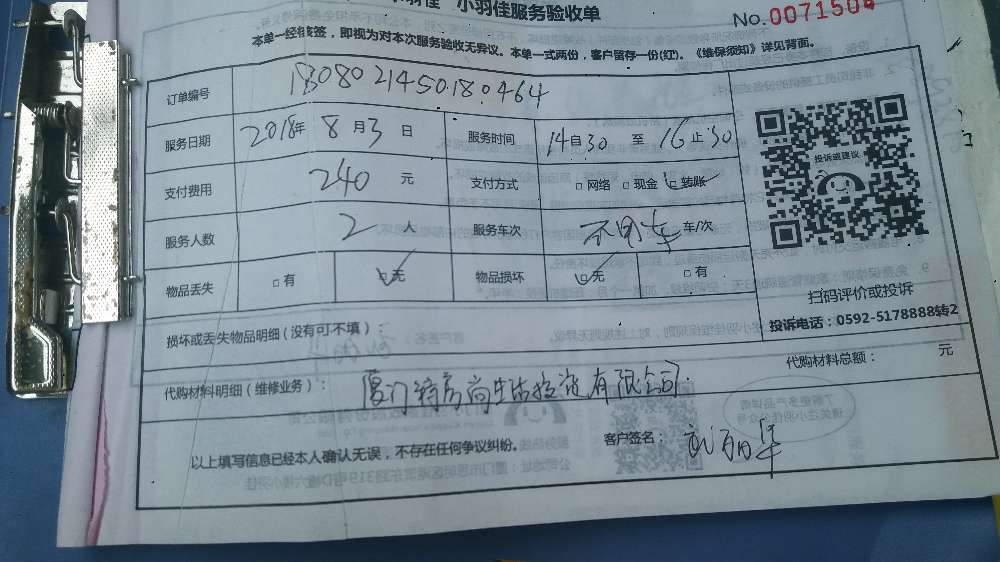 小羽佳服务验收单
No.0071504
本单一经核签，即视为对本次服务验收无异议。本单一式两份，客户留存一份(红)。《维保须知》详见背面。
订单编号 1808021450180464
服务日期 2018年 8月3日 服务时间 14自30 至 16止30
支付费用 240 元 支付方式 □网络 □现金 □转账
服务人数 2 人 服务车次 不用车 车/次
物品丢失 □有 □无 物品损坏 □无 □有
投诉或建议
扫码评价或投诉
投诉电话：0592-5178888转2
损坏或丢失物品明细（没有可不填）：
代购材料总额： 元
代购材料明细（维修业务）： 厦门 尚生活 有限公司
客户签名：
以上填写信息已经本人确认无误，不存在任何争议纠纷。